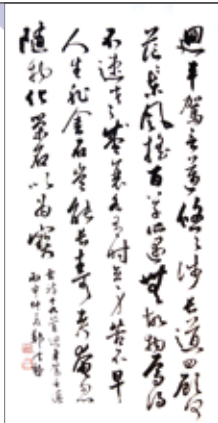 迴車駕言邁悠悠涉長道四顧何
茫茫東風搖百草所遇無故物焉得
不速老盛衰各有時立身苦不早
人生非金石豈能長壽考奄忽
隨物化榮名以為寶
古詩十九首迴車駕言邁
丙申仲夏